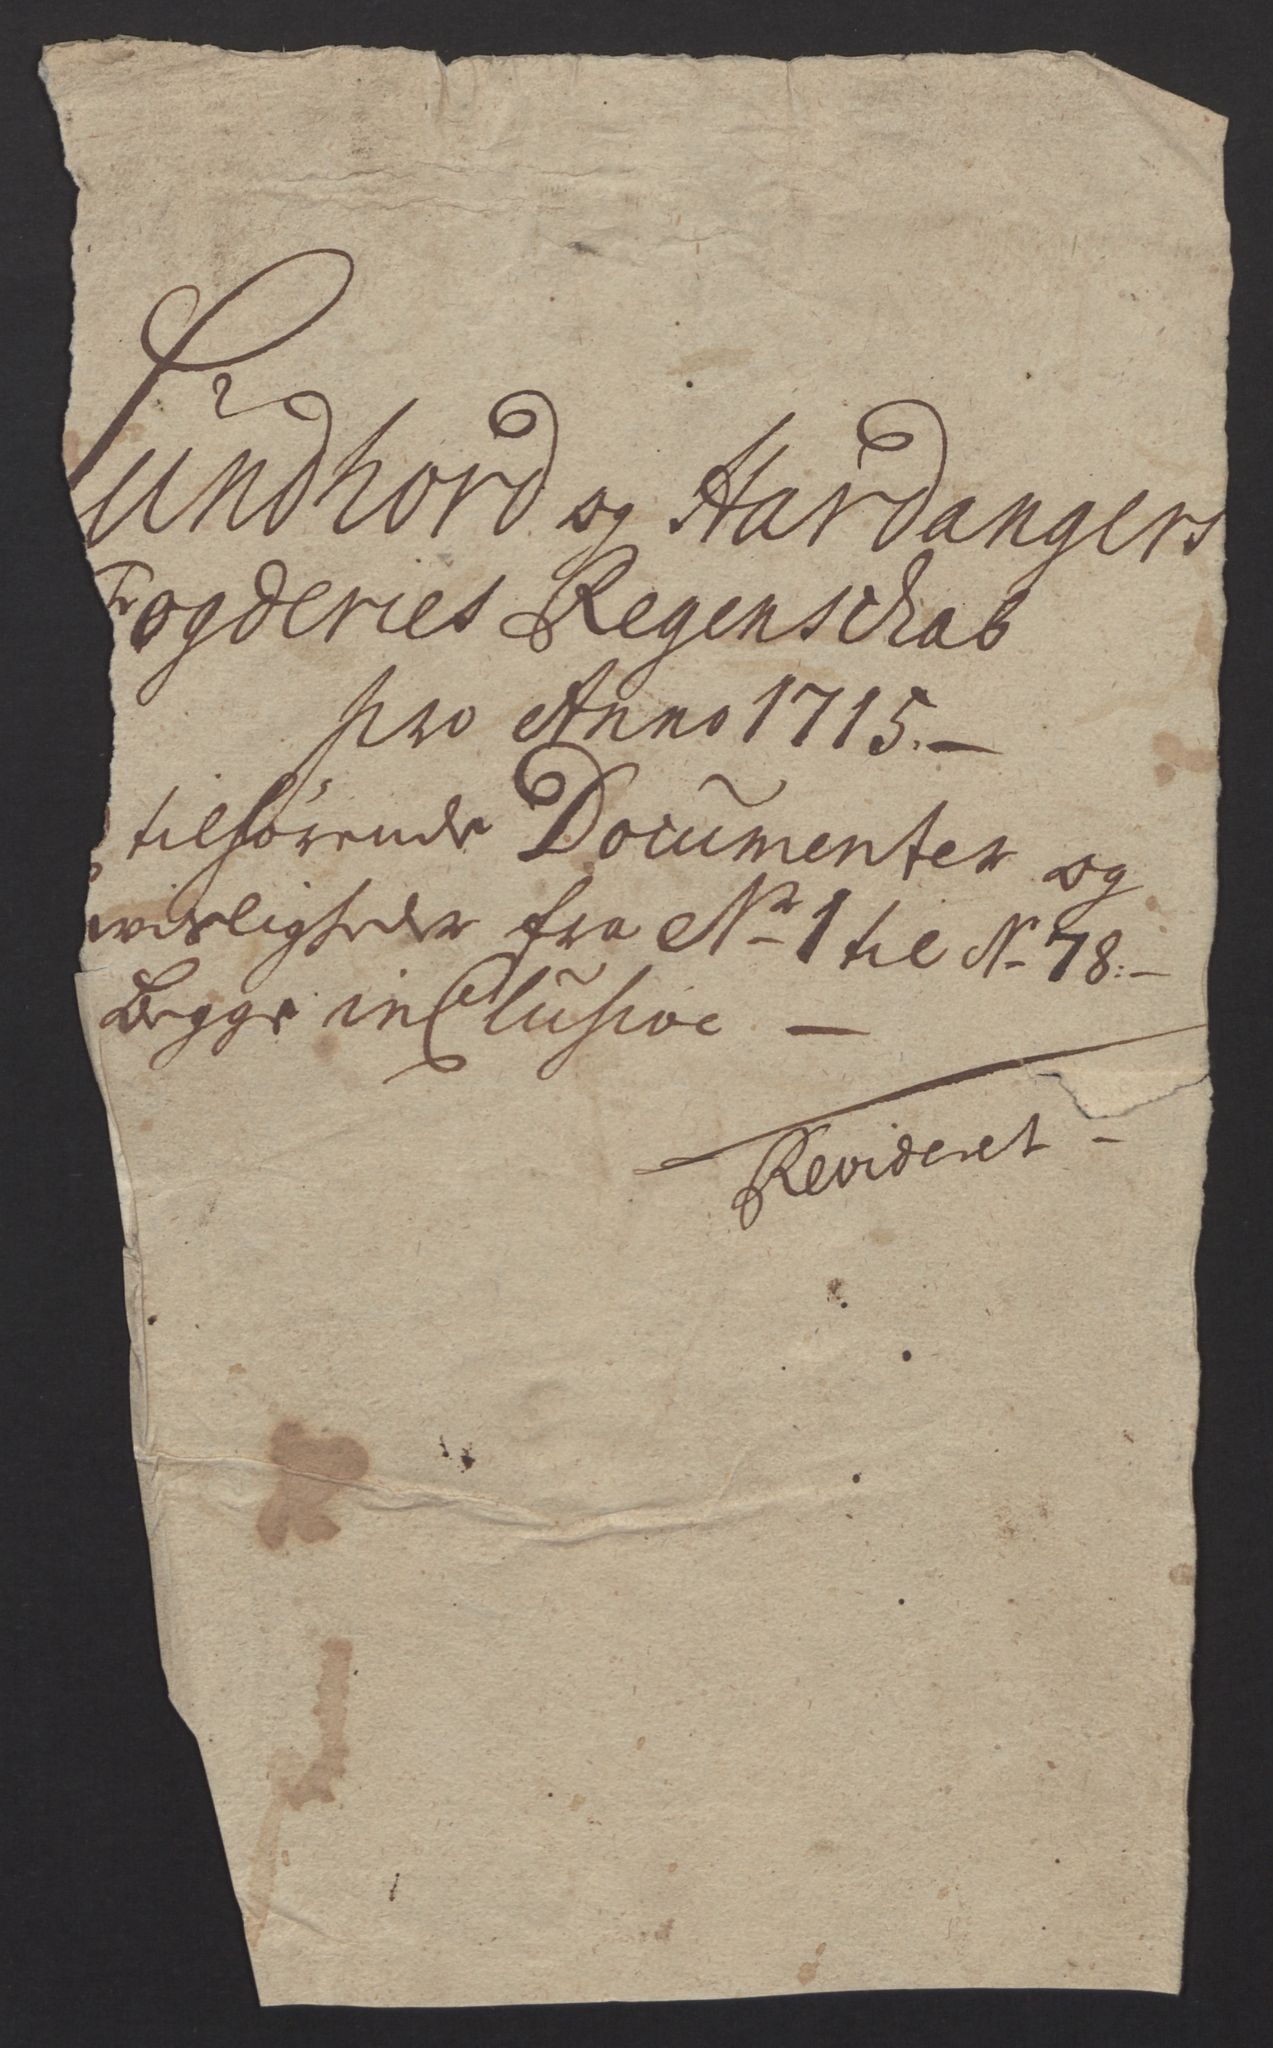 Sundhord og Hardangers
Fogderies Regenskab
pro Anno 1715.—
tilhörende Documenter og
wisligheder fra Nr 1 til N- 78:—
Begge inClusive —
Revideret —